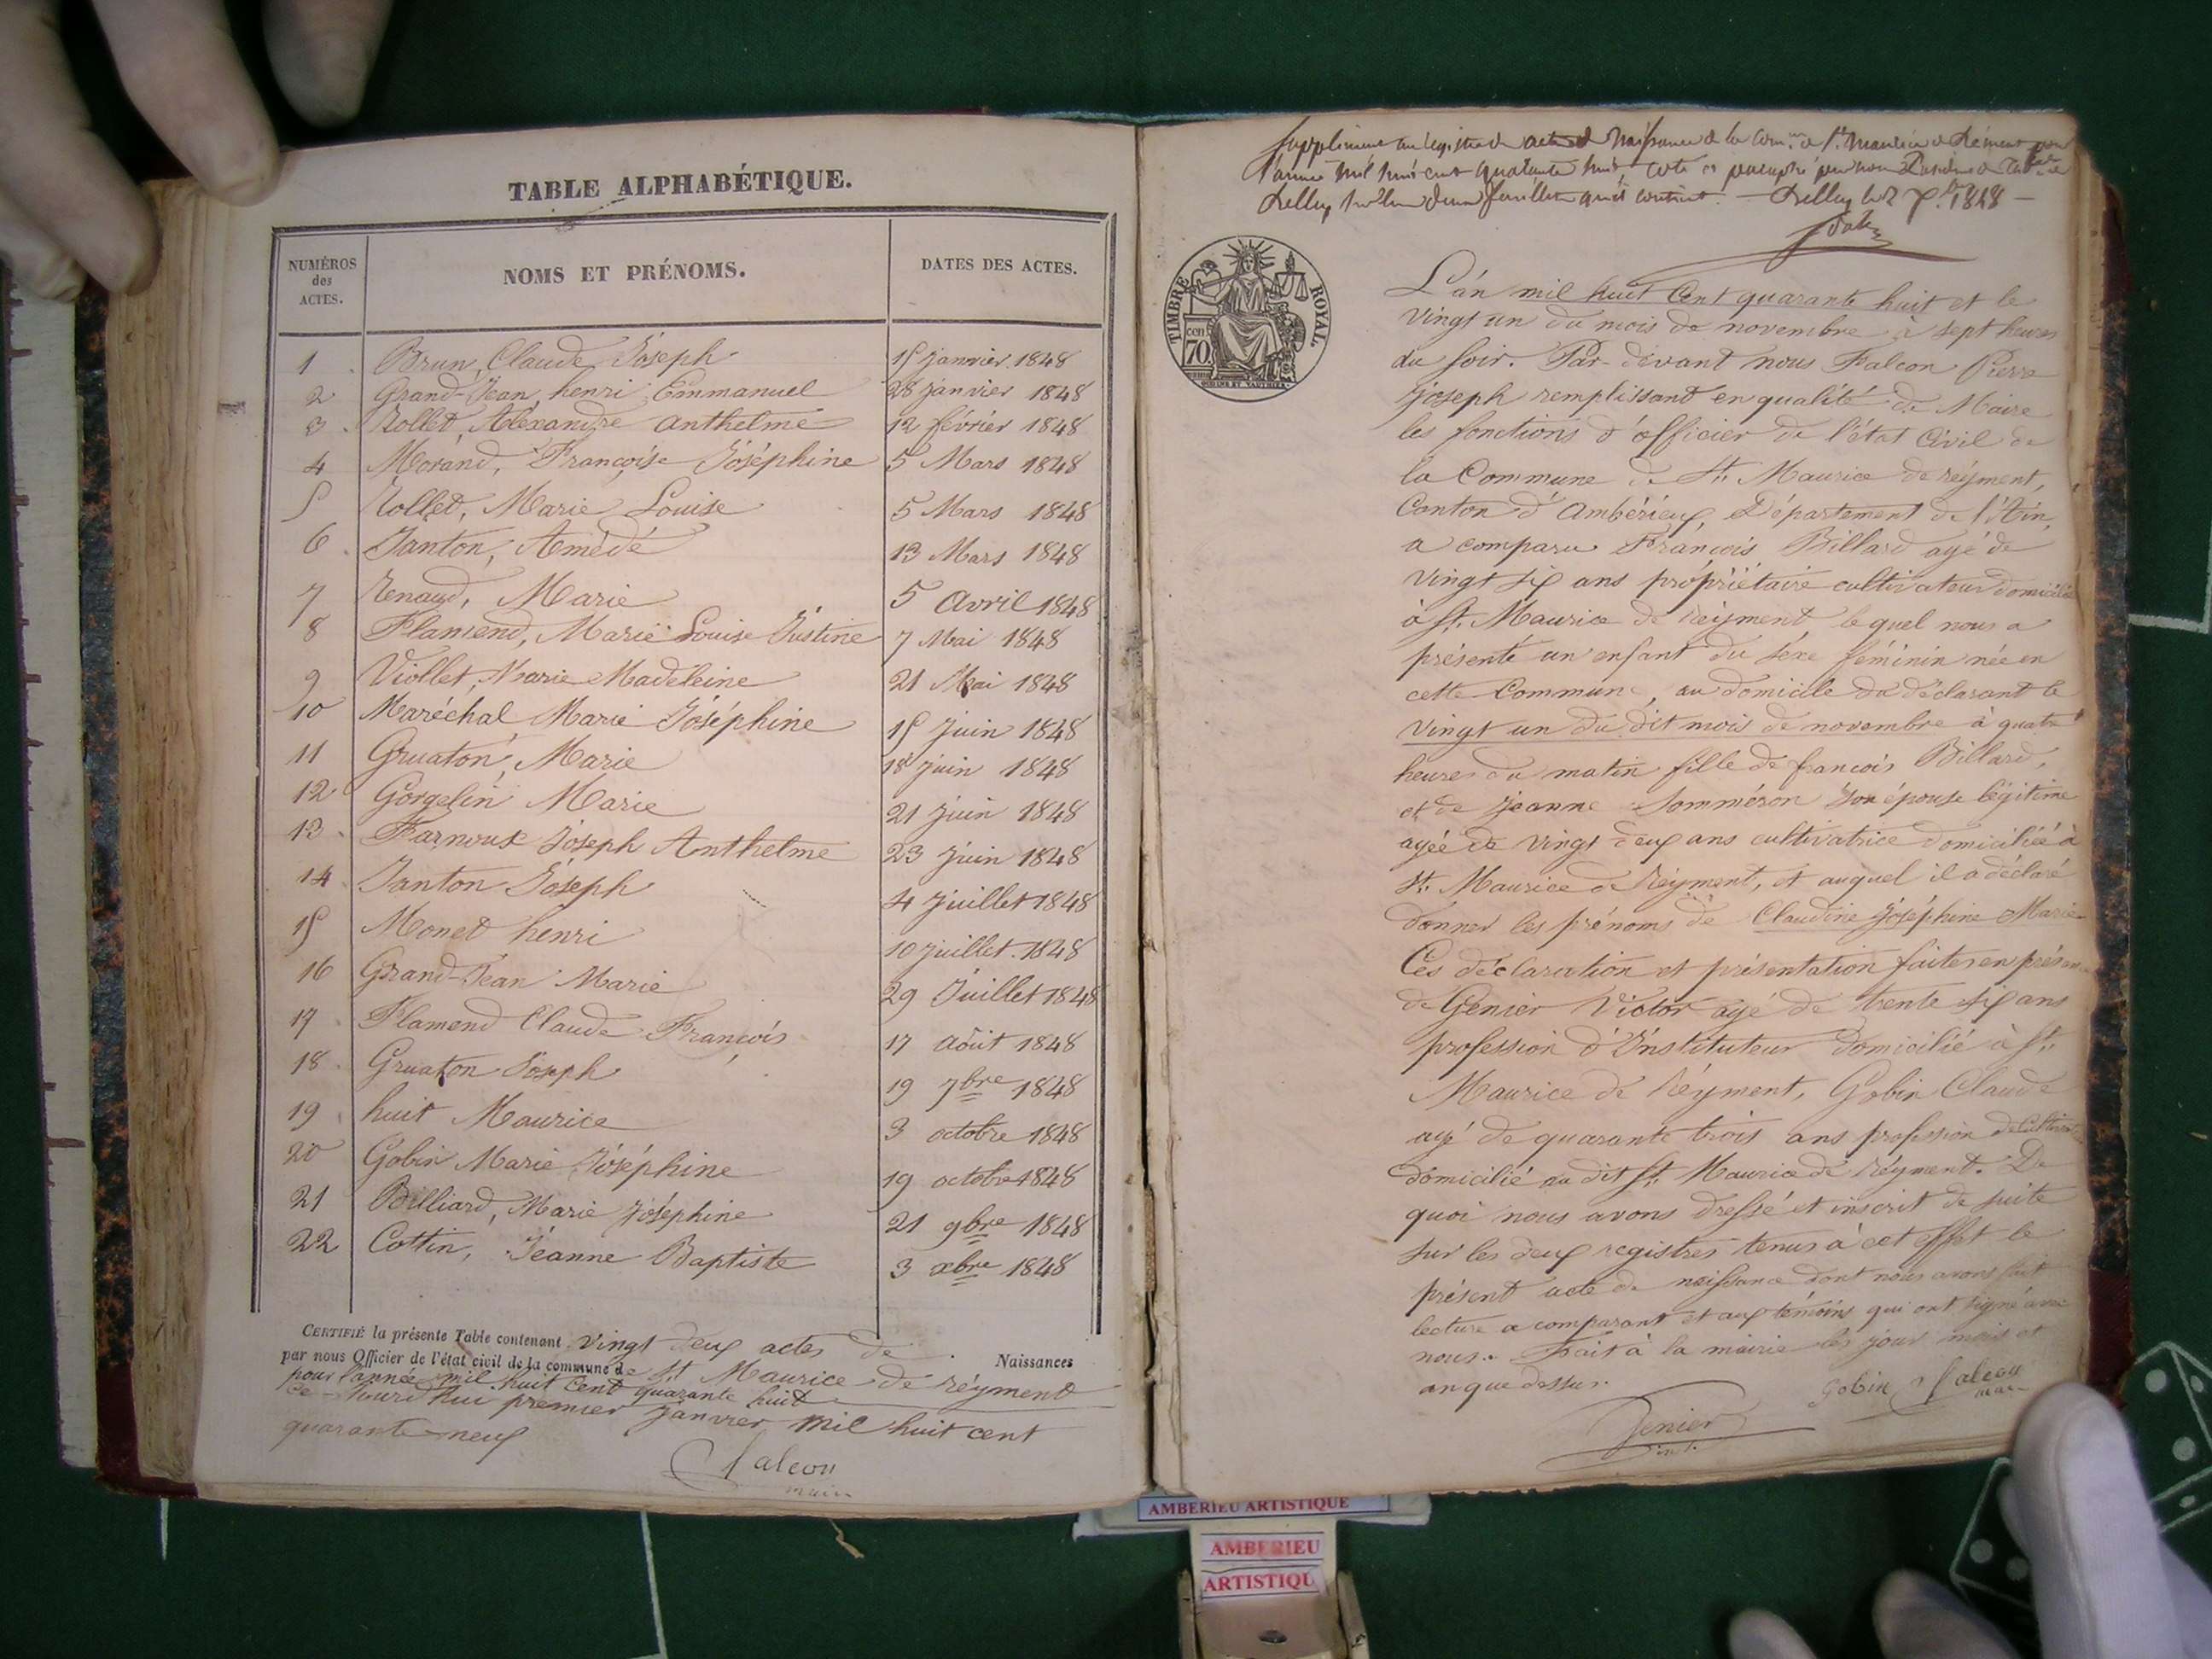 TABLE ALPHABÉTIQUE.
NUMÉROS des ACTES. NOMS ET PRÉNOMS. DATES DES ACTES.
1 Brun, Claude Joseph 15 janvier 1848
2 Grand-Jean, henri Emmanuel 28 janvier 1848
3 Rollet, Aléxandre anthelme 12 février 1848
4 Morand, Françoise Joséphine 5 Mars 1848
5 Rollet, Marie Louise 5 Mars 1848
6 Janton, Amédé 13 Mars 1848
7 Renaud, Marie 5 avril 1848
8 Flamend, Marie Louise Justine 7 Mai 1848
9 Viollet, Marie Madeleine 21 Mai 1848
10 Maréchal Marie Joséphine 15 Juin 1848
11 Gruaton, Marie 18 juin 1848
12 Gorgelin Marie 21 juin 1848
13 Farnoux Joseph Anthelme 23 juin 1848
14 Janton Joseph 4 juillet 1848
15 Monet henri 10 juillet 1848
16 Grand-Jean Marie 29 Juillet 1848
17 Flamend Claude François 17 août 1848
18 Gruaton Joseph 19 7bre 1848
19 huit Maurice 3 octobre 1848
20 Gobin Marie Joséphine 19 octobre 1848
21 Billiard, Marie Joséphine 21 9bre 1848
22 Cottin, Jéanne Baptiste 3 xbre 1848
CERTIFIÉ la présente Table contenant vingt deux actes de Naissances
par nous Officier de l'état civil de la commune de St Maurice de réyment
pour l'année mil huit cent quarante huit
ce jourd'hui premier janvier mil huit cent
quarante-neuf
falcon
maire
Supplément au registre des actes de Naissance de la Comne de St Maurice de Rément pour
l'année mil huit cent quarante huit, coté et paraphé par nous
Belley deux feuillets qu'il contient. — Belley le 1848 —
TIMBRE ROYAL.
cen 70
L'an mil huit Cent quarante huit et le
vingt un du mois de novembre à sept heures
du soir. Par-devant nous Falcon Pierre
joseph remplissant en qualité de Maire
les fonctions d'officier de l'état Civil de
la Commune de St. Maurice de réyment,
Canton d'Ambérieux, Département de l'Ain,
a comparu François Billard agé de
vingt six ans propriétaire cultivateur domicilié
à St. Maurice de réyment lequel nous a
présenté un enfant du séxe féminin née en
cette Commune, au domicile du déclarant le
vingt un du dit mois de novembre à quatre
heures du matin fille de françois Billard,
et de jeanne Somméron son épouse légitime
agée de vingt deux ans cultivatrice domiciliée à
St. Maurice de Réyment, et auquel il a déclaré
donner les prénoms de Claudine Joséphine Marie
Ces déclaration et présentation faites en présence
de Génier Victor agé de trente six ans
profession d'Instituteur domicilié à St.
Maurice de Réyment, Gobin Claude
agé de quarante trois ans profession de Cultivateur
domicilié au dit St. Maurice de Réyment. De
quoi nous avons dressé et inscrit de suite
sur les deux registres tenus à cet effet le
présent acte de naissance dont nous avons fait
lecture a comparant et aux témoins qui ont signé avec
nous. Fait à la mairie les jour mois et
an que dessus.
Gobin falcon
maire
Genier
AMBERIEU ARTISTIQUE
AMBERIEU
ARTISTIQU